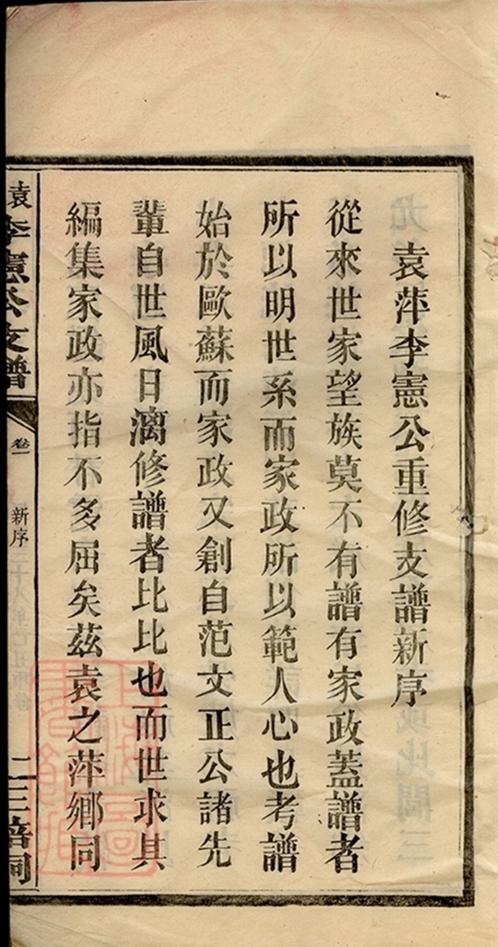 袁萍李憲公重修支譜新序
從來世家望族莫不有譜有家政蓋譜者
所以明世系而家政所以範人心也考譜
始於歐蘇而家政又創自范文正公諸先
輩自世風日漓修譜者比比也而世求其
編集家政亦指不多屈矣茲袁之萍鄉同
袁李憲公支譜
卷一
新序